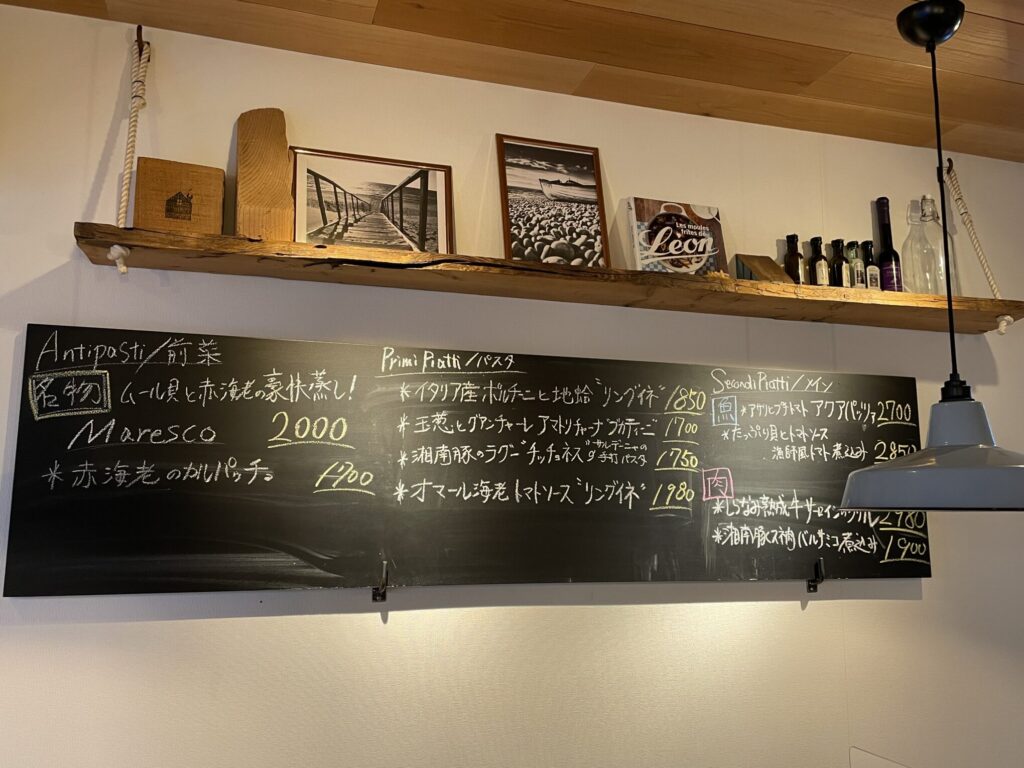 Les moules
frites de
Léon
Antipasti/前菜
名物 ムール貝と赤海老の豪快蒸し!
Maresco 2000
*赤海老のカルパッチョ 1700
Primi Piatti/パスタ
*イタリア産ポルチーニと地蛤 "リングイネ" 1850
*玉葱とグアンチャーレ アマトリチャーナ ブカティーニ 1700
*湘南豚のラグー サルデーニャの手打パスタ 1750
*オマール海老トマトソース"リングイネ" 1980
Secondi Piatti/メイン
魚 *アサリとプチトマト アクアパッツァ 2700
*たっぷり貝とトマトソース
漁師風トマト煮込み 2850
肉
熟成牛サーロイン 2980
*湘南豚 バルサミコ煮込み 1900